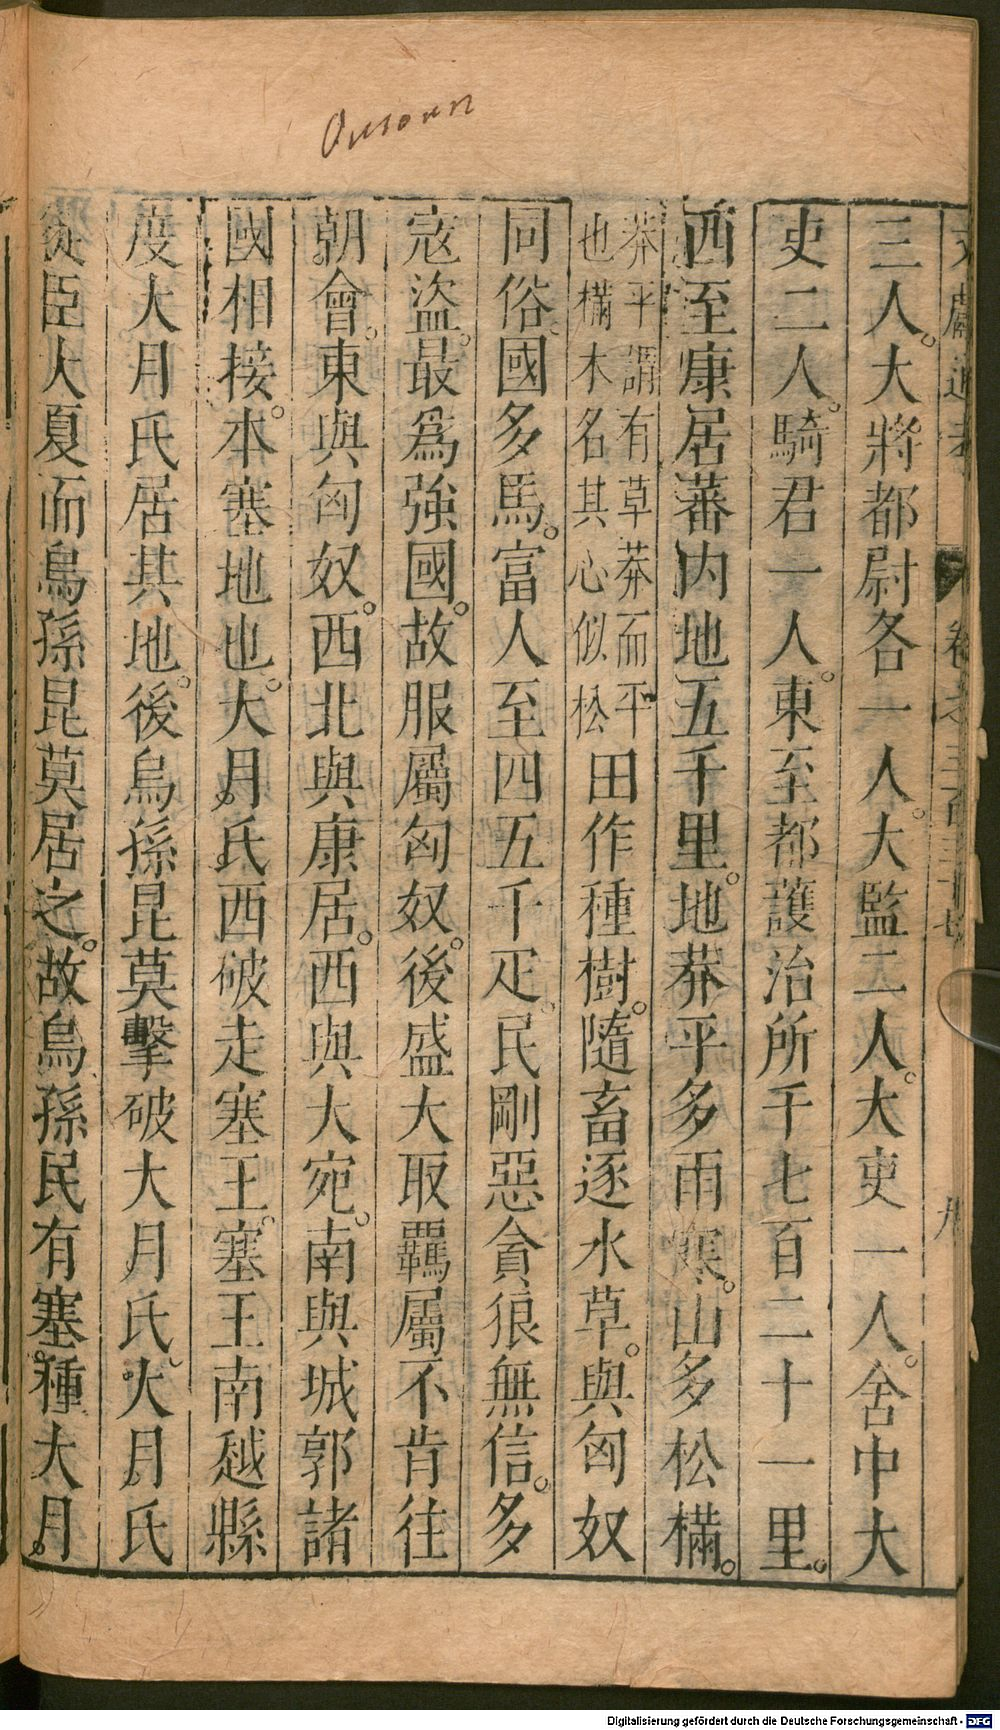 三人。大將都尉各一人。大監二人。大吏一人。舍中大
吏二人。騎君一人。東至都護治所千七百二十一里。
西至康居蕃内地五千里。地莽平多雨寒。山多松樠。
莽平謂有草莽而平
也樠木名其心似松
田作種樹。隨畜逐水草。與匈奴
同俗。國多馬。富人至四五千疋。民剛惡貪狼無信。多
寇盜。最爲強國。故服屬匈奴。後盛大取羈屬不肯往
朝會。東與匈奴。西北與康居。西與大宛。南與城郭諸
國相接。本塞地也。大月氏西破走塞王。塞王南越縣
度大月氏居其地。後烏孫昆莫擊破大月氏。大月氏
徙臣大夏而烏孫昆莫居之。故烏孫民有塞種大月。
Digitalisierung gefördert durch die Deutsche Forschungsgemeinschaft - DFG